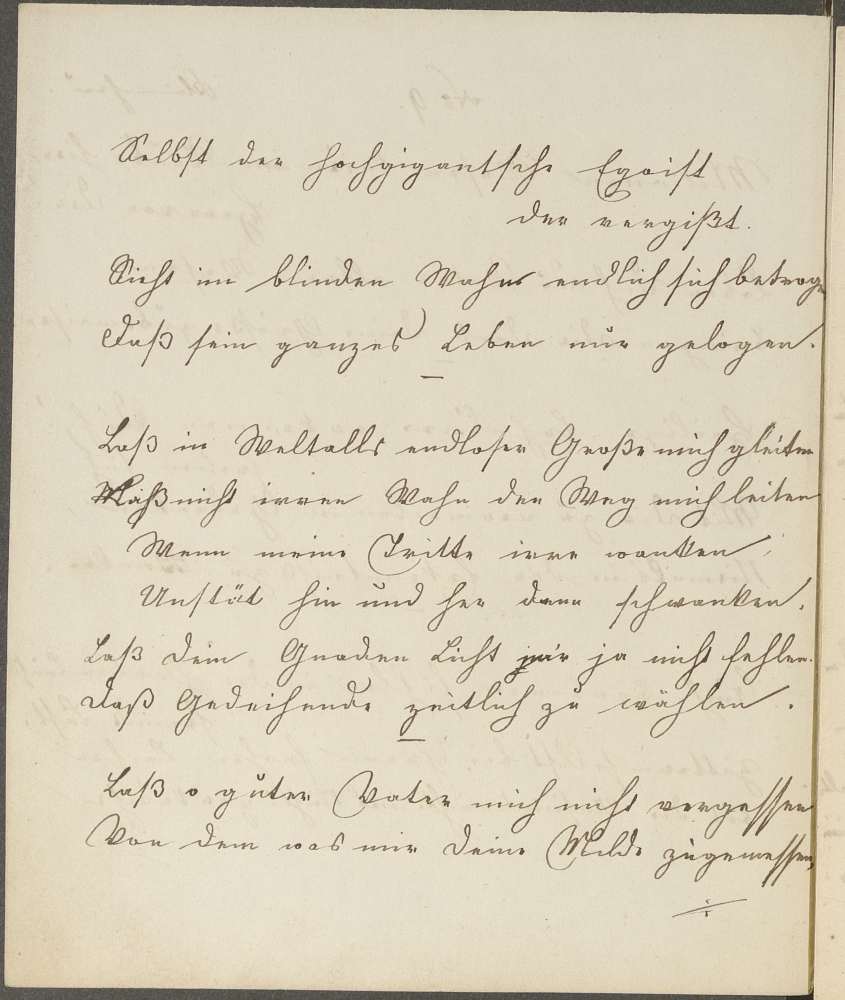 Selbst der hochgigantsche Egoist
der vergißt.
Sieht im blinden Wahne endlich sich betrogen
Daß sein ganzes Leben nur gelogen.
Laß in Weltalls endloser Große mich gleiten
Laß nicht irren Wahn den Weg mich leiten
Wenn meine Tritte irre wanken,
Unstät hin und her dann schwanken.
Laß dein Gnaden Licht mir ja nicht fehlen.
Daß Gedeihende zeitlich zu wählen.
Laß o guter Vater mich nicht vergessen
Von dem was mir deine Milde zugemessen,